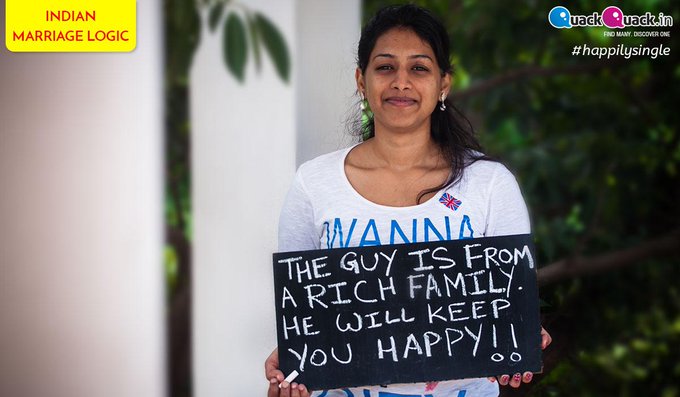 INDIAN
MARRIAGE LOGIC
QuackQuack.in
FIND MANY. DISCOVER ONE
#happilysingle
WANNA
THE GUY IS FROM
A RICH FAMILY.
HE WILL KEEP
YOU HAPPY!!